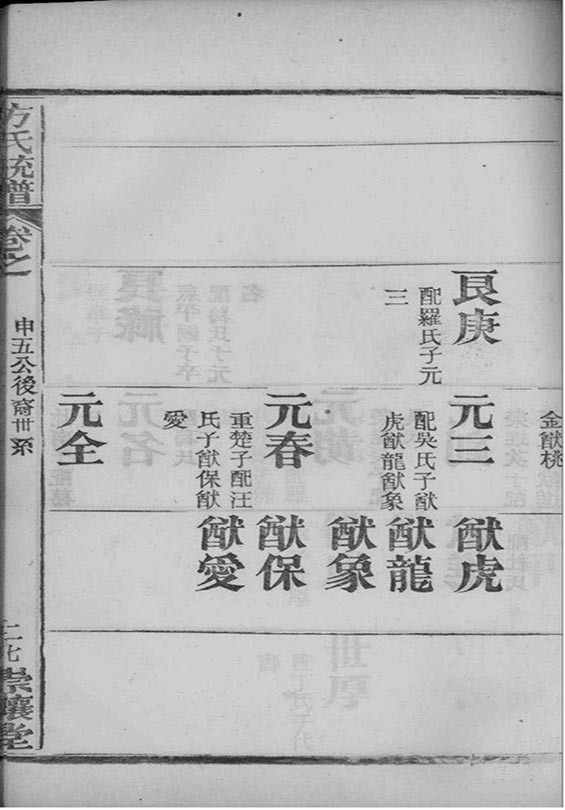 良庚
配羅氏子元
三
金猷桃
元三
配吳氏子猷
虎猷龍猷象
元春
重楚子配汪
氏子猷保猷
愛
元全
猷虎
猷龍
猷象
猷保
猷愛
方氏統譜
卷之
申五公後裔世系
二七
崇讓堂